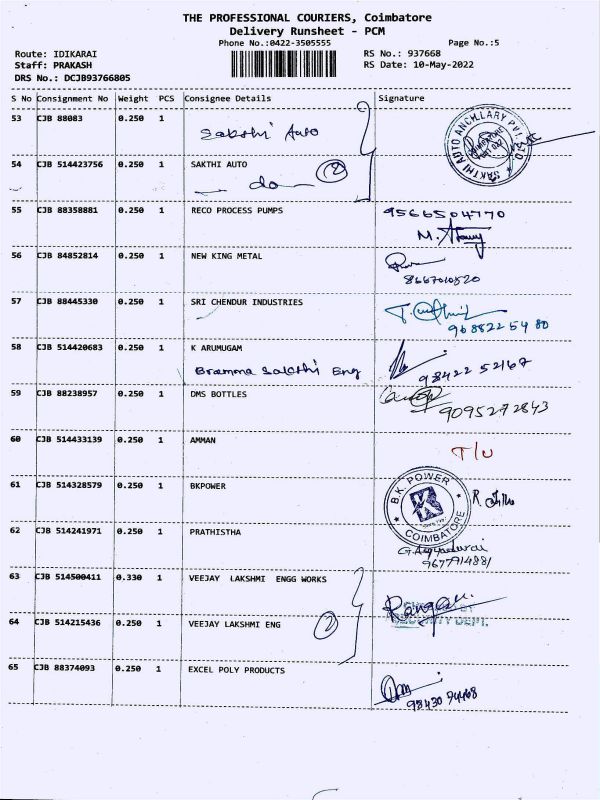 THE PROFESSIONAL COURIERS, Coimbatore
Delivery Runsheet - PCM
Phone No.:0422-3505555 Page No.:5
Route: IDIKARAI RS No.: 937668
Staff: PRAKASH RS Date: 10-May-2022
DRS No.: DCJB93766805
S No Consignment No Weight PCS Consignee Details Signature
53 CJB 88083 0.250 1
Sakthi Auto
SAKTHI AUTO ANCILLARY PVT. LTD.
54 CJB 514423756 0.250 1 SAKTHI AUTO
do 2
55 CJB 88358881 0.250 1 RECO PROCESS PUMPS 9566504770
56 CJB 84852814 0.250 1 NEW KING METAL
8667010520
57 CJB 88445330 0.250 1 SRI CHENDUR INDUSTRIES
9688225480
58 CJB 514420683 0.250 1 K ARUMUGAM
Bramma Sakthi Eng 98422 52167
59 CJB 88238957 0.250 1 DMS BOTTLES
9095272843
60 CJB 514433139 0.250 1 AMMAN
T/U
61 CJB 514328579 0.250 1 BKPOWER
B.K. POWER
COIMBATORE
62 CJB 514241971 0.250 1 PRATHISTHA
9677914881
63 CJB 514500411 0.330 1 VEEJAY LAKSHMI ENGG WORKS
64 CJB 514215436 0.250 1 VEEJAY LAKSHMI ENG 2
SECURITY DEPT.
65 CJB 88374093 0.250 1 EXCEL POLY PRODUCTS
98430 94468